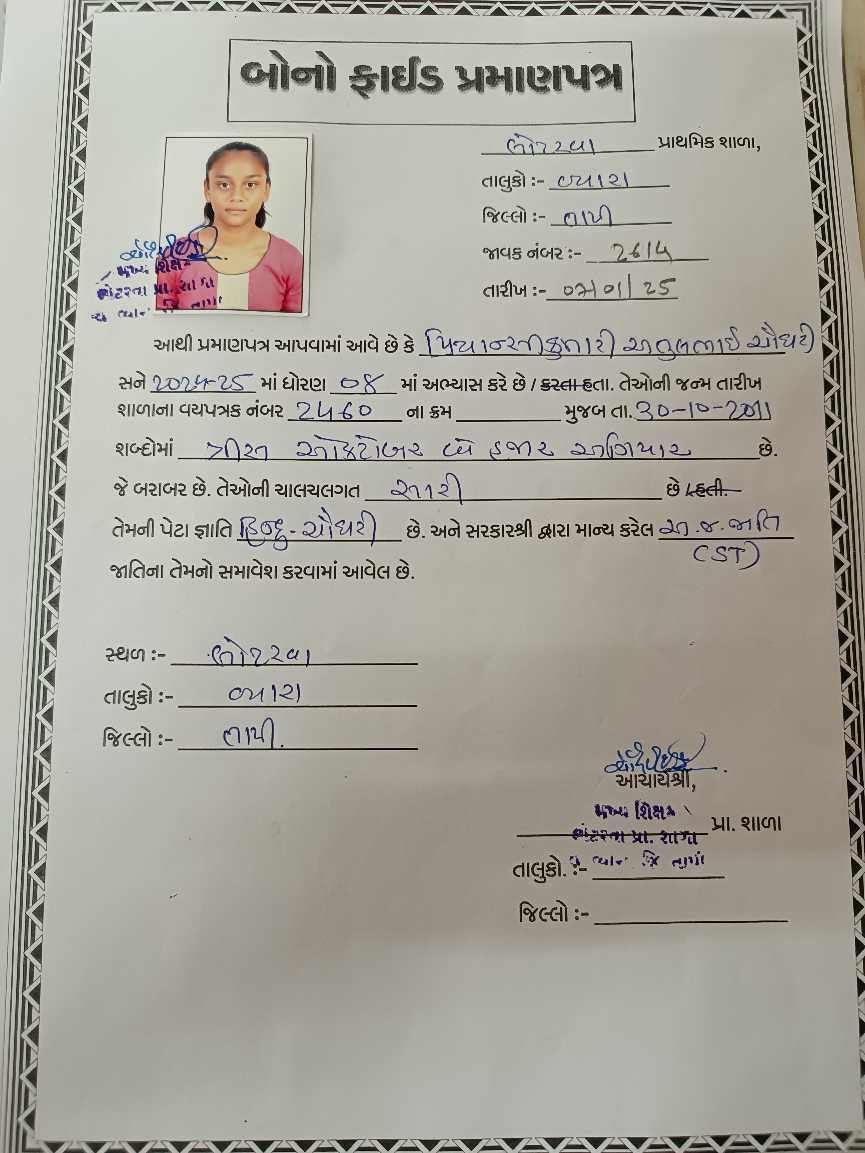 બોનો ફાઈડ પ્રમાણપત્ર
પ્રાથમિક શાળા,
તાલુકો :- વ્યારા
જિલ્લો :- તાપી
જાવક નંબર :- 2614
તારીખ :- 01/25
આથી પ્રમાણપત્ર આપવામાં આવે છે કે અતુલભાઈ ચૌધરી
સને 2024-25 માં ધોરણ 08 માં અભ્યાસ કરે છે / કરતા હતા. તેઓની જન્મ તારીખ
શાળાના વયપત્રક નંબર 2460 ના ક્રમ મુજબ તા. 30-10-2011
શબ્દોમાં ત્રીસ ઓક્ટોબર બે હજાર અગિયાર છે.
જે બરાબર છે. તેઓની ચાલચલગત સારી છે / હતી.
તેમની પેટા જ્ઞાતિ હિન્દુ - ચૌધરી છે. અને સરકારશ્રી દ્વારા માન્ય કરેલ અ.જ.જાતિ
(ST)
જાતિના તેમનો સમાવેશ કરવામાં આવેલ છે.
સ્થળ :-
તાલુકો :- વ્યારા
જિલ્લો :- તાપી.
આચાર્યશ્રી,
મુખ્ય શિક્ષક
પ્રા. શાળા પ્રા. શાળા
તાલુકો. :-
જિલ્લો :-